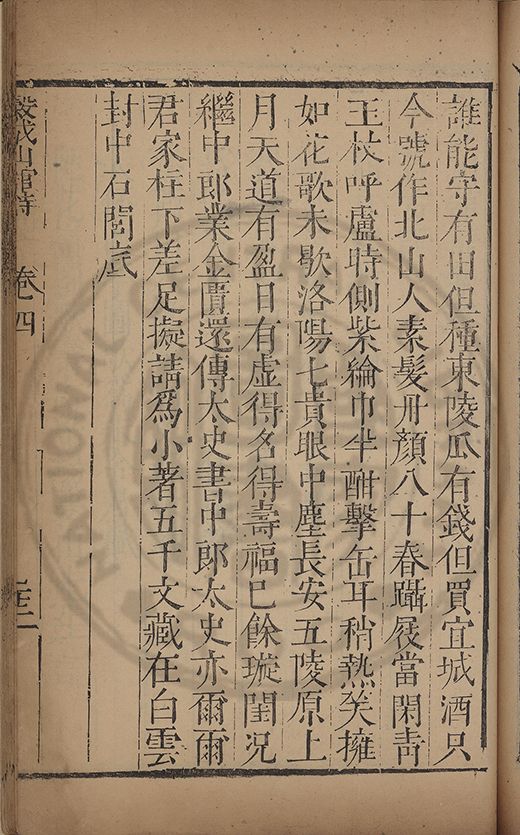 誰能守有田但種東陵瓜有錢但買宜城酒只
今號作北山人素髮丹顏八十春躡屐當閑靑
玉杖呼盧時側紫綸巾半酣擊缶耳稍熱笑擁
如花歌未歇洛陽七貴眼中塵長安五陵原上
月天道有盈日有虛得名得壽福已餘璇閨况
繼中郎業金匱還傳太史書中郎太史亦爾爾
君家柱下差足擬請爲小著五千文藏在白雲
封中石閭底
穀城山館詩
卷四